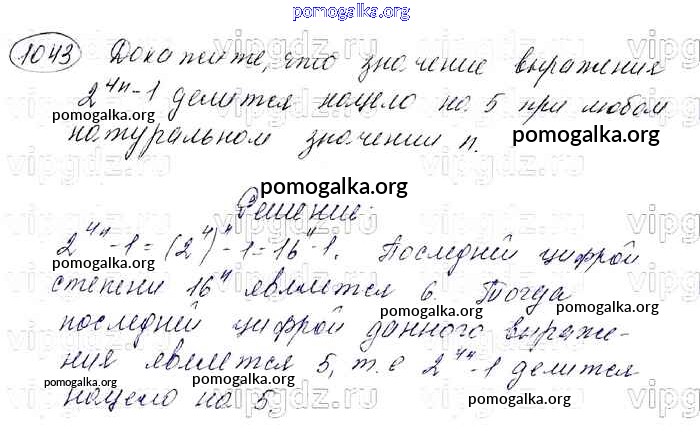 pomogalka.org
1043 Докажите, что значение выражения
2^{4n}-1 делится нацело на 5 при любом
натуральном значении n.
pomogalka.org
pomogalka.org
pomogalka.org
Решение:
2^{4n}-1=(2^4)^n-1=16^n-1. Последней цифрой
pomogalka.org
pomogalka.org
степени 16^n является 6. Тогда
pomogalka.org
последней цифрой данного выраже-
pomogalka.org
ния является 5, т.е 2^{4n}-1 делится
pomogalka.org
pomogalka.org
pomogalka.org
нацело на 5.
vipgdz.ru